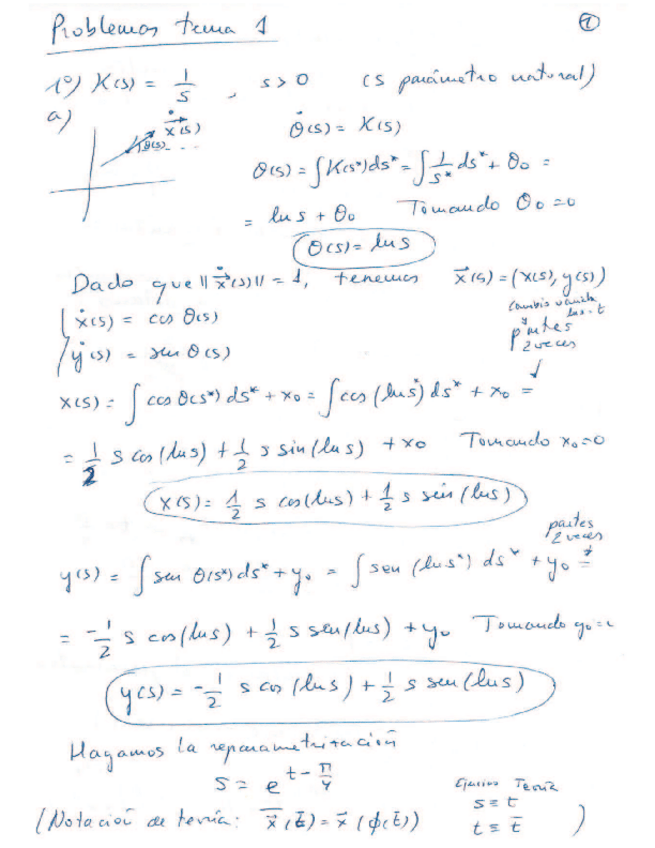 Problemas tema 1
1
1º) K(s) = 1/s , s > 0 (s parámetro natural)
a)
ẋ(s)
θ(s)
θ̇(s) = K(s)
θ(s) = ∫K(s*)ds* = ∫ 1/s* ds* + θ₀ =
= ln s + θ₀ Tomando θ₀ = 0
θ(s) = ln s
Dado que ||ẋ(s)|| = 1, tenemos x⃗(s) = (x(s), y(s))
ẋ(s) = cos θ(s)
ẏ(s) = sen θ(s)
cambio variable
ln s = t
y
partes
2 veces
x(s) = ∫ cos θ(s*) ds* + x₀ = ∫ cos (ln s*) ds* + x₀ =
= 1/2 s cos(ln s) + 1/2 s sin(ln s) + x₀ Tomando x₀ = 0
x(s) = 1/2 s cos(ln s) + 1/2 s sen(ln s)
partes
2 veces
y(s) = ∫ sen θ(s*) ds* + y₀ = ∫ sen (ln s*) ds* + y₀ =
= -1/2 s cos(ln s) + 1/2 s sen(ln s) + y₀ Tomando y₀ =
y(s) = -1/2 s cos(ln s) + 1/2 s sen(ln s)
Hagamos la reparametrización
s = e^(t - π/4)
(Notación de teoría: x̄(t̄) = x⃗(ϕ(t̄))
Ejercicio Teoría
s ≡ t
t ≡ t̄ )